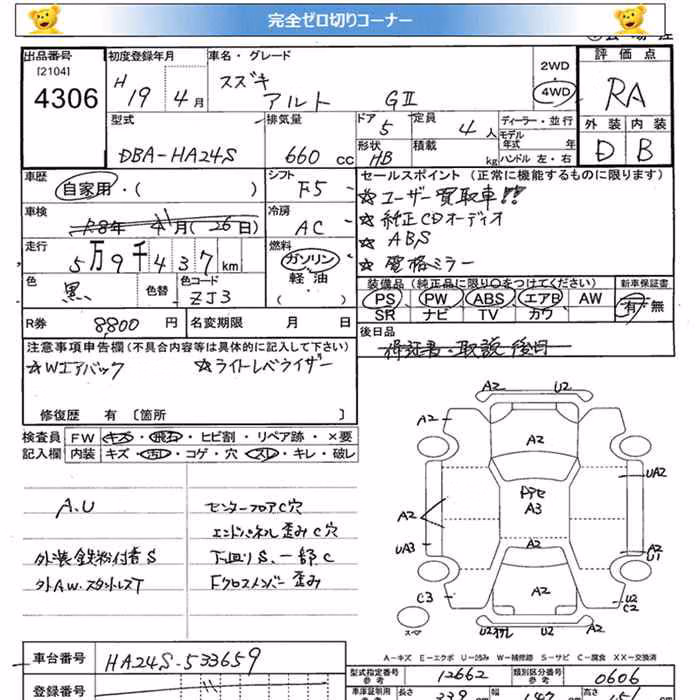 完全ゼロ切りコーナー
出品番号
[2104]
4306
初度登録年月
H 19 4月
車名・グレード
スズキ
アルト GⅡ
2WD
4WD
評価点
RA
外装 内装
D B
型式
DBA-HA24S
排気量
660 cc
ドア 5
定員 4人
形状 HB
積載 kg
ディーラー・並行
モデル年式 年
ハンドル 左・右
車歴
自家用・( )
シフト
F5
車検
冷房
AC
走行
5万9千437km
燃料
ガソリン
軽油
( )
色
黒
色替
色コード
ZJ3
R券 8800円
名変期限 月 日
セールスポイント(正常に機能するものに限ります)
☆ユーザー買取車!!
☆純正CDオーディオ
☆ABS
☆電格ミラー
装備品(純正品に限り○をつけてください)
PS PW ABS エアB AW
SR ナビ TV カワ
新車保証書
有・無
後日品
保証書・取説 後日
注意事項申告欄(不具合内容等は具体的に記入して下さい)
☆Wエアバック ☆ライトレベライザー
修復歴 有 [箇所 ]
検査員 FW キズ・飛石・ヒビ割・リペア跡・×要
記入欄 内装 キズ・汚レ・コゲ・穴・スレ・キレ・破レ
A.U
外装鉄粉付着S
外A.W.スタットレスT
センターフロアC穴
エンドパネル歪みC穴
下廻りS、一部C
Fクロスメンバー歪み
A2 U2
A2
A2
UA2
Dアセ
A3
A2
UA3
A2
A2
U1
A2
C3
U2
C2
スペア
U2 U2 A2
A-キズ E-エクボ U-凹み W-補修跡 S-サビ C-腐食 XX-交換済
車台番号
HA24S-533659
登録番号
型式指定番号
参考
12662
類別区分番号
参考
0606
車庫証明用
長さ
339
幅
147
高さ